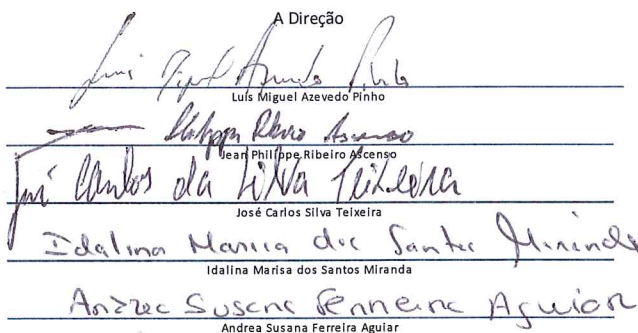 A Direção
Luís Miguel Azevedo Pinho
Jean Philippe Ribeiro Ascenso
José Carlos da Silva Teixeira
José Carlos Silva Teixeira
Idalina Marisa dos Santos Miranda
Idalina Marisa dos Santos Miranda
Andrea Susana Ferreira Aguiar
Andrea Susana Ferreira Aguiar